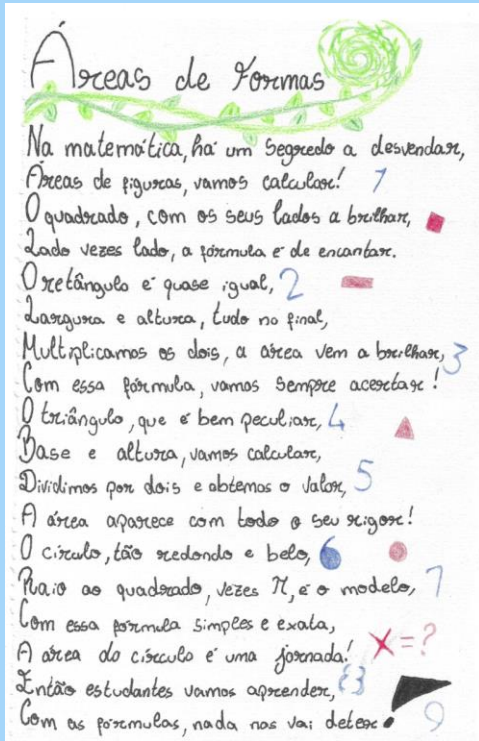 Áreas de Formas
Na matemática, há um segredo a desvendar,
Áreas de figuras, vamos calcular! 1
O quadrado, com os seus lados a brilhar,
Lado vezes lado, a fórmula é de encantar.
O retângulo é quase igual, 2
Largura e altura, tudo no final,
Multiplicamos os dois, a área vem a brilhar, 3
Com essa fórmula, vamos sempre acertar!
O triângulo, que é bem peculiar, 4
Base e altura, vamos calcular,
Dividimos por dois e obtemos o valor, 5
A área aparece com todo o seu rigor!
O círculo, tão redondo e belo, 6
Raio ao quadrado, vezes π, é o modelo, 7
Com essa fórmula simples e exata,
A área do círculo é uma jornada! X=?
Então estudantes vamos aprender, {}
Com as fórmulas, nada nos vai deter. 9